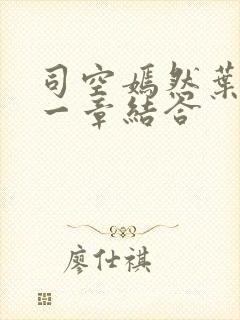 司空嫣然葉
一章結合
廖仕祺